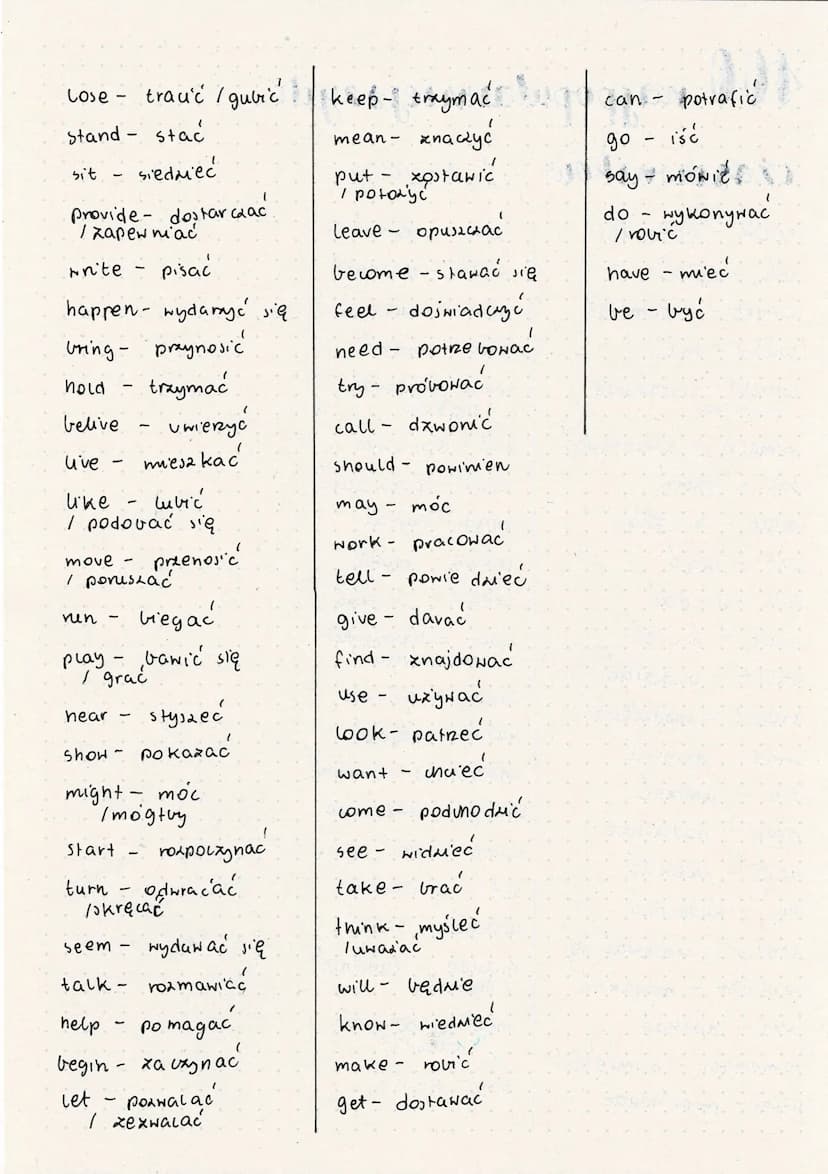 lose - tracić / gubić
stand - stać
sit - siedzieć
provide - dostarczać
/ zapewniać
write - pisać
happen - wydarzyć się
bring - przynosić
hold - trzymać
belive - uwierzyć
live - mieszkać
like - lubić
/ podobać się
move - przenosić
/ poruszać
run - biegać
play - bawić się
/ grać
hear - słyszeć
show - pokazać
might - móc
/ mógłby
start - rozpoczynać
turn - odwracać
/ skręcać
seem - wydawać się
talk - rozmawiać
help - pomagać
begin - zaczynać
let - pozwalać
/ zezwalać
keep - trzymać
mean - znaczyć
put - zostawić
/ położyć
leave - opuszczać
become - stawać się
feel - doświadczyć
need - potrzebować
try - próbować
call - dzwonić
should - powinien
may - móc
work - pracować
tell - powiedzieć
give - davać
find - znajdować
use - używać
look - patrzeć
want - chcieć
come - podchodzić
see - widzieć
take - brać
think - myśleć
/ uważać
will - będzie
know - wiedzieć
make - robić
get - dostawać
can - potrafić
go - iść
say - mówić
do - wykonywać
/ robić
have - mieć
be - być